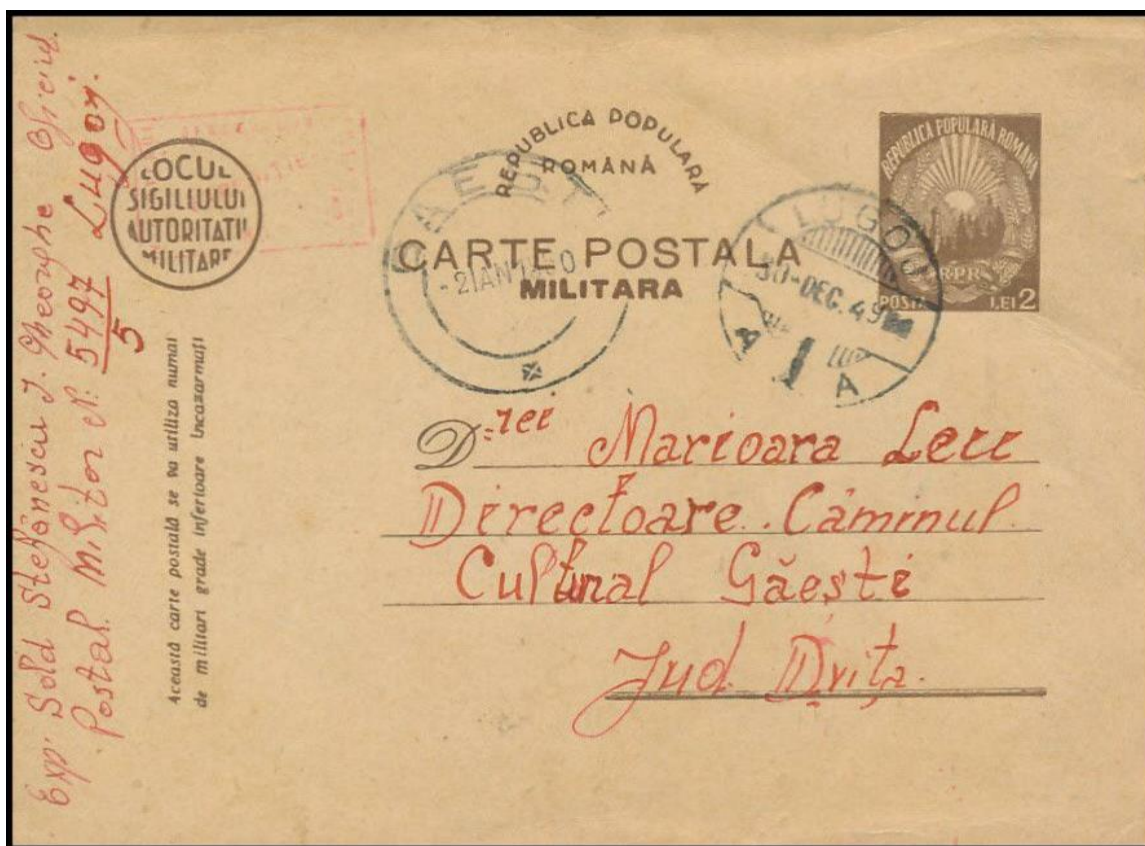 Exp: Sold Stefănescu I. Gheorghe Oficiul
Postal Militar N: 5497 Lugoj.
5
LOCUL
SIGILIULUI
AUTORITATII
MILITARE
Această carte postală se va utiliza numai
de militari grade inferioare încazarmați
REPUBLICA POPULARĂ
ROMÂNĂ
CARTE POSTALA
MILITARA
GAEȘTI
-2 IAN 1950
LUGOJ
30-DEC. 49
A
REPUBLICA POPULARĂ ROMÂNĂ
RPR
POSTA LEI 2
D-rei Marioara
Directoare Căminul
Cultural Găești
Jud. Dvița.